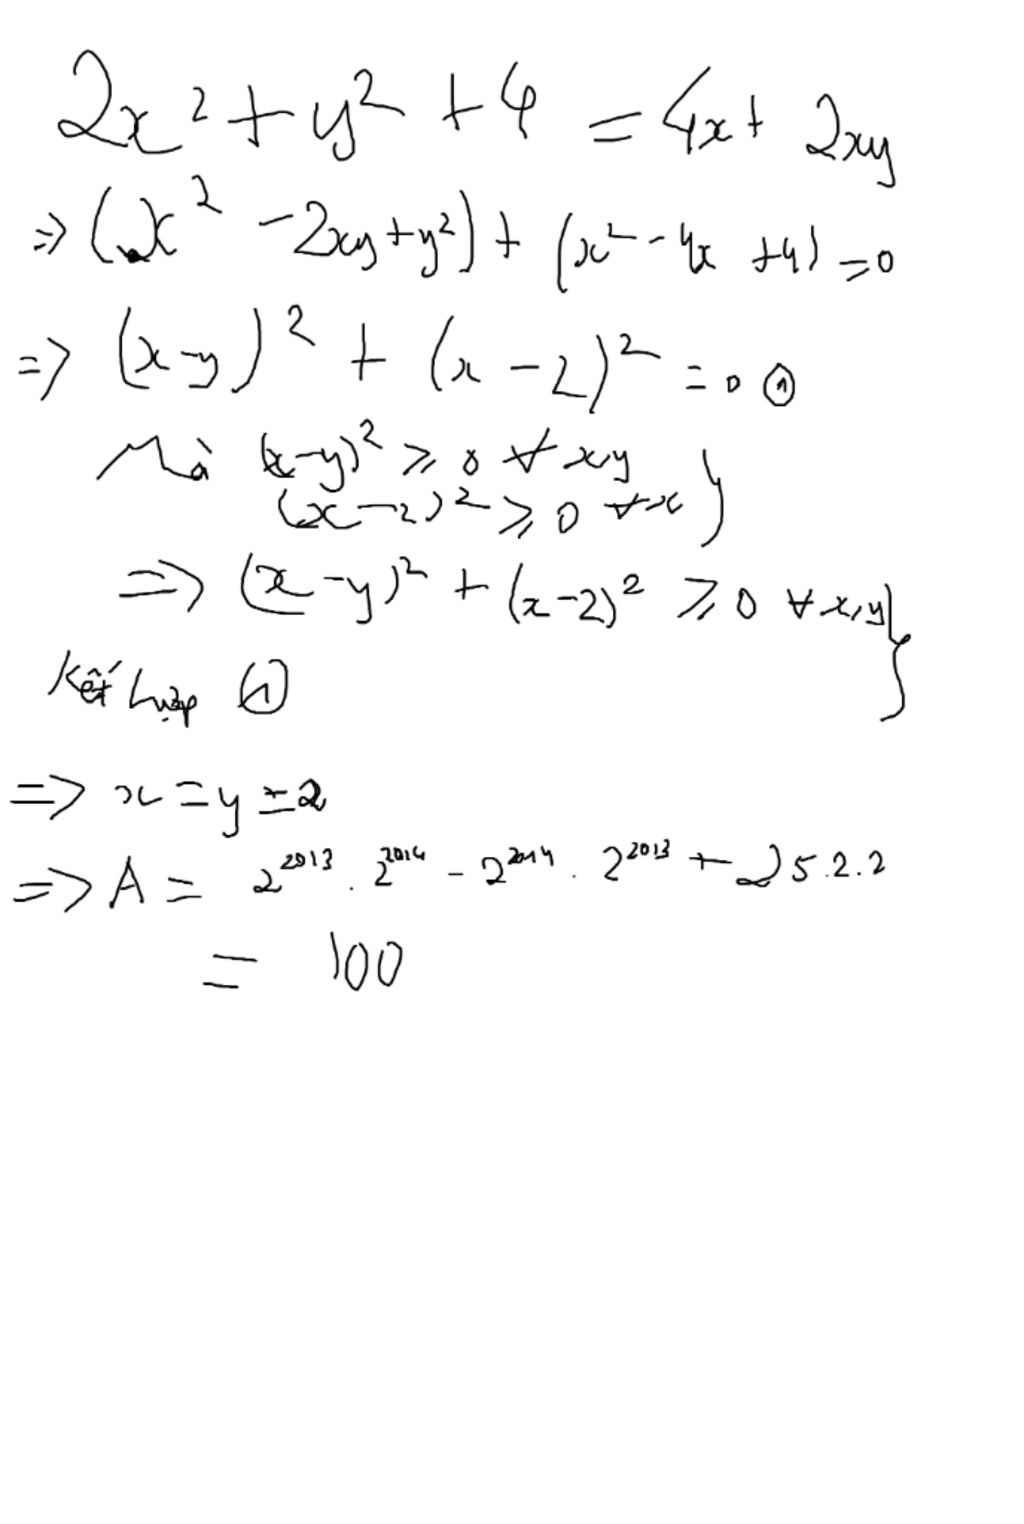 2x² + y² + 4 = 4x + 2xy
=> (x² - 2xy + y²) + (x² - 4x + 4) = 0
=> (x-y)² + (x-2)² = 0 ①
Mà (x-y)² ⩾ 0 ∀ x,y
(x-2)² ⩾ 0 ∀ x }
=> (x-y)² + (x-2)² ⩾ 0 ∀ x,y }
Kết hợp ①
=> x = y = 2
=> A = 2²⁰¹³ . 2²⁰¹⁴ - 2²⁰¹⁴ . 2²⁰¹³ + 25.2.2
= 100